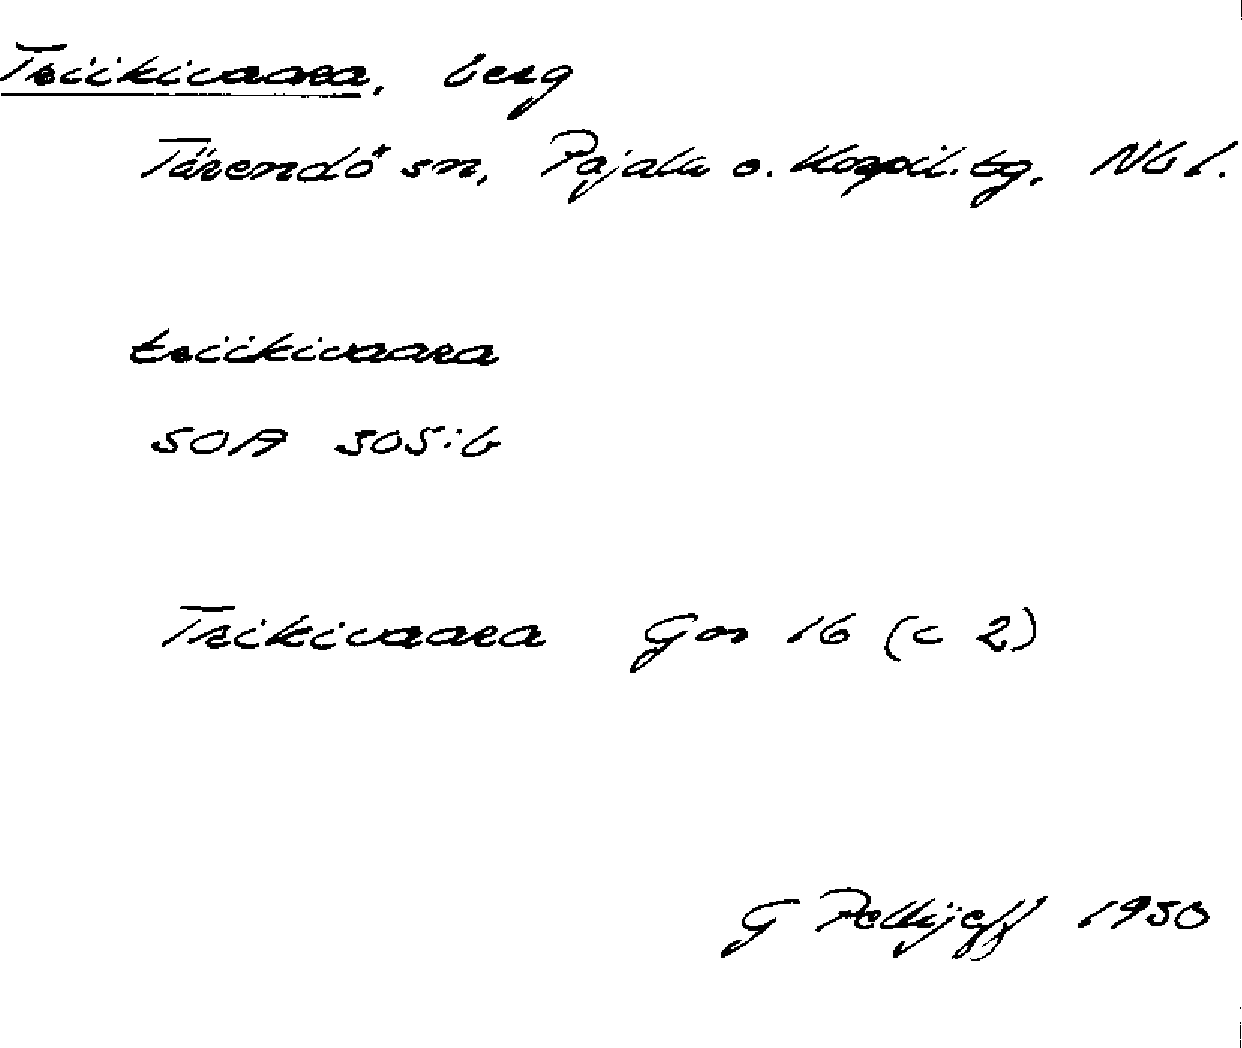 Triikivaara, berg
Tärendö sn, Pajala o. Korpil. tg, Nb l.
triikivaara
SOA 305:6
Trikivaara Gor 16 (c 2)
G Pellijeff 1950